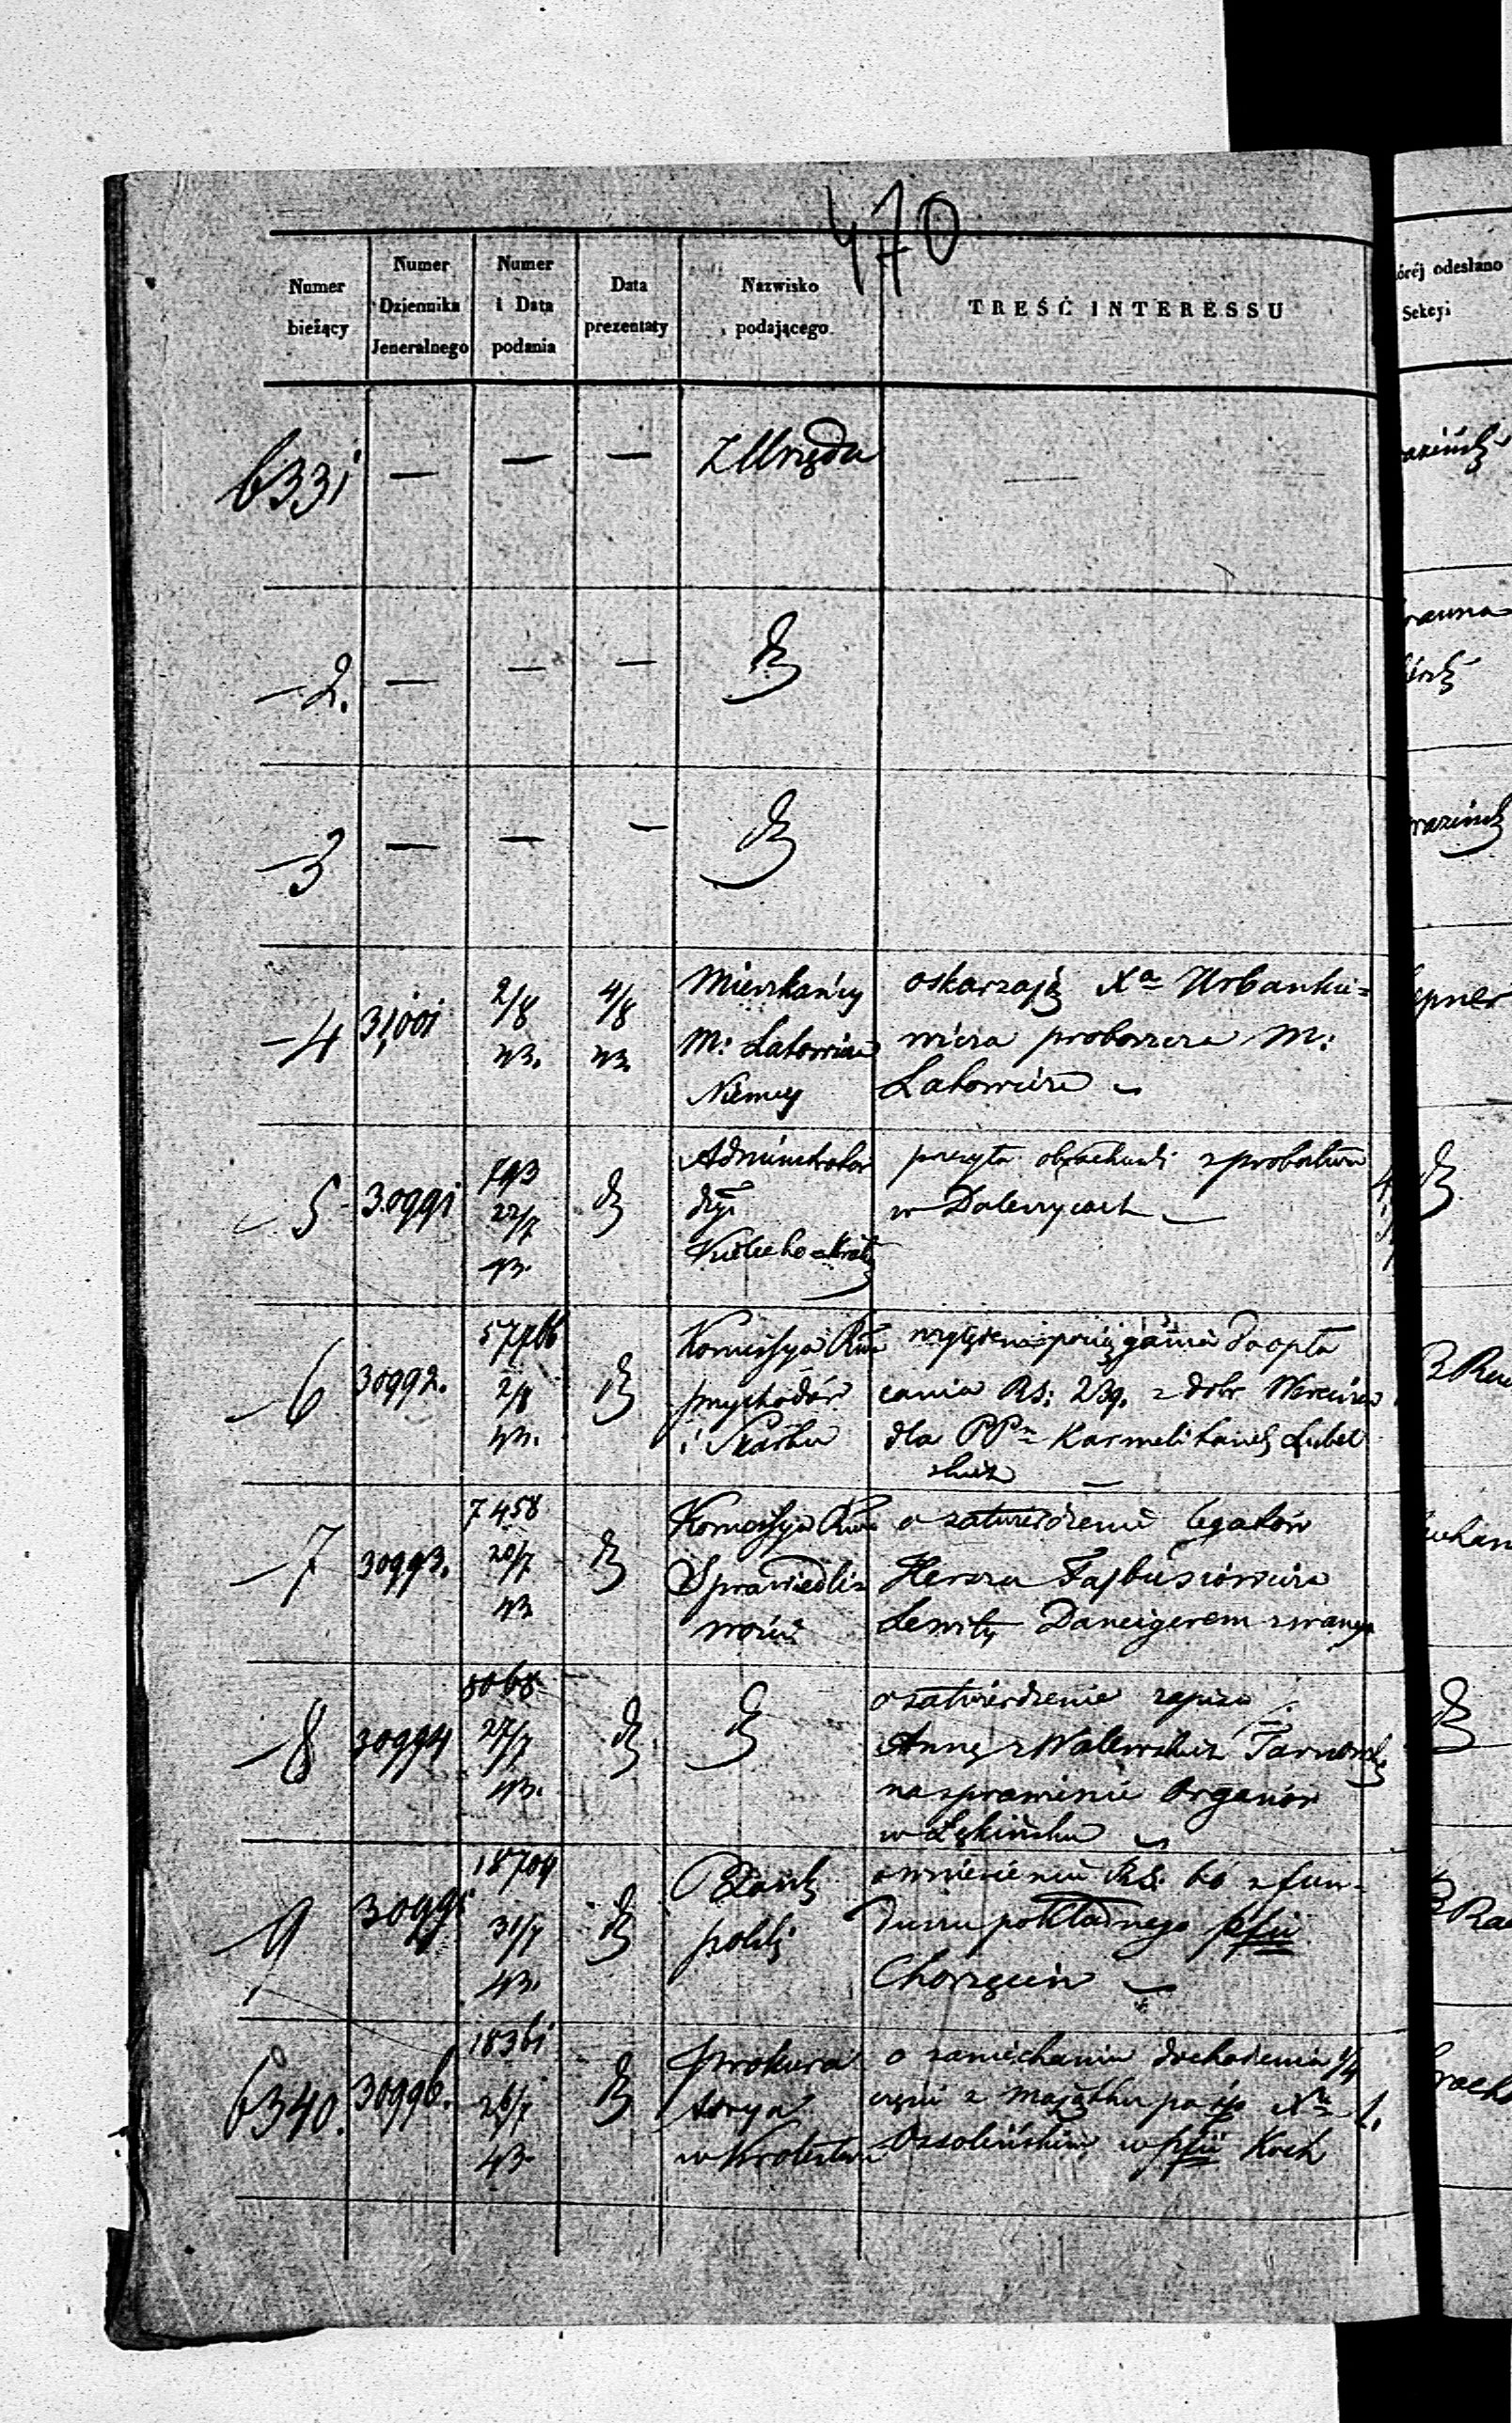 470
Numer bieżący
Numer Dziennika Jeneralnego
Numer i Data podania
Data prezentaty
Nazwisko podającego
TREŚĆ INTERESSU
óréj odesłano
Sekcyi
6331 — — — Z Urzędu —
— 2. — — — dt
— 3 — — — dt
— 4 31,001 2/8 43. 4/8 43.
Mieszkańcy
M: Latowicz
Niemcy
oskarzają Xa Urbankie=
wicza proboszcza M:
Latowicza
— 5 30991 793 22/7 43. dt
Administrator
Dyi
Kielecko=Krak
przesyła obrachunki z probostwa
w Daleszycach —
— 6 30992. 2/8 43. dt
Komissya Rwa
przychodów
i Skarbu
do opła
cania Rs: 239. z dóbr
dla PPn Karmelitanek Lubel
skich —
— 7 30993. 7458 20/7 43 dt
Komissya Rwa
Sprawiedli=
wości
o zatwierdzenie legatów
Hersza Fajbusiowicza
Lewity Dancigerem zwanego
— 8 30994 8068 27/7 43. dt dt
o zatwierdzenie zapisu
Anny z Walewskich Tarnowsk
na sprawienie Organów
w Łękińsku
— 9 30995 18704 31/7 43. dt
Bank
polski
o wniesienie Rs: 60 z fun=
duszu pokładnego pfii
Chorzęcin —
6340. 30996. 18361 26/7 43. dt
Prokura
torya
w Królestwie
o zaniechaniu dochodzenia 1/4
części z majątku po śp Xu
Ossolińskim w pfii Kock